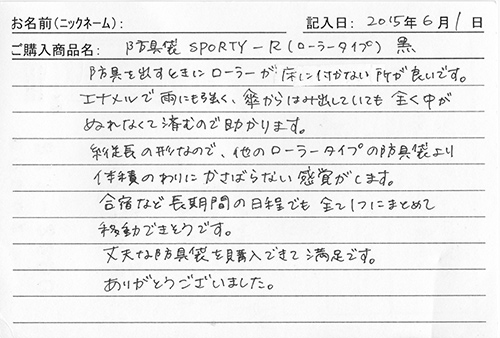 お名前(ニックネーム): 記入日: 2015年6月1日
ご購入商品名: 防具袋 SPORTY-R(ローラータイプ) 黒
防具を出すときにローラーが床に付かない所が良いです。
エナメルで雨にも強く、傘からはみ出していても全く中が
ぬれなくて済むので助かります。
縦長の形なので、他のローラータイプの防具袋より
体積のわりにかさばらない感覚がします。
合宿など長期間の日程でも全て1つにまとめて
移動できそうです。
丈夫な防具袋を購入できて満足です。
ありがとうございました。